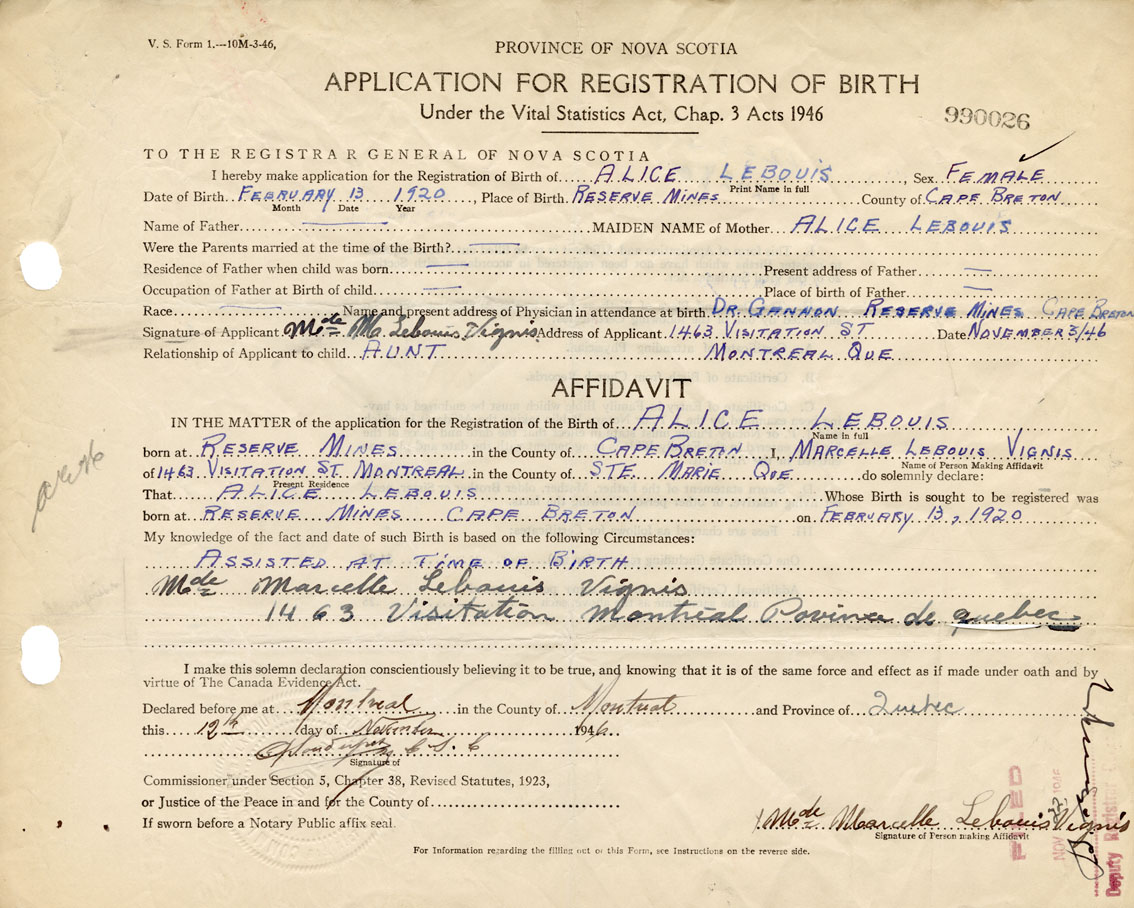 V. S. Form 1.---10M-3-46,
PROVINCE OF NOVA SCOTIA
APPLICATION FOR REGISTRATION OF BIRTH
Under the Vital Statistics Act, Chap. 3 Acts 1946
990026
TO THE REGISTRAR GENERAL OF NOVA SCOTIA
I hereby make application for the Registration of Birth of ALICE LEBOUIS, Sex FEMALE
Print Name in full
Date of Birth FEBRUARY 13 1920, Place of Birth RESERVE MINES County of CAPE BRETON
Month Date Year
Name of Father — MAIDEN NAME of Mother ALICE LEBOUIS
Were the Parents married at the time of the Birth? —
Residence of Father when child was born — Present address of Father —
Occupation of Father at Birth of child — Place of birth of Father —
Race — Name and present address of Physician in attendance at birth DR. GANNON RESERVE MINES CAPE BRETON
Signature of Applicant Mde M. Lebouis Vignis Address of Applicant 1463 VISITATION ST Date NOVEMBER 3/46
Relationship of Applicant to child AUNT MONTREAL QUE
AFFIDAVIT
IN THE MATTER of the application for the Registration of Birth of ALICE LEBOUIS
Name in full
born at RESERVE MINES in the County of CAPE BRETON I, MARCELLE LEBOUIS VIGNIS
Name of Person Making Affidavit
of 1463 VISITATION ST. MONTREAL in the County of STE MARIE QUE do solemnly declare:
Present Residence
That ALICE LEBOUIS Whose Birth is sought to be registered was
born at RESERVE MINES CAPE BRETON on FEBRUARY 13, 1920
My knowledge of the fact and date of such Birth is based on the following Circumstances:
ASSISTED AT TIME OF BIRTH
Mde Marcelle Lebouis Vignis
1463 Visitation Montréal Povince de quebec
I make this solemn declaration conscientiously believing it to be true, and knowing that it is of the same force and effect as if made under oath and by
virtue of The Canada Evidence Act.
Declared before me at Montreal in the County of Montreal and Province of Quebec
this 12th day of November 1946
C S C
Signature of
Commissioner under Section 5, Chapter 38, Revised Statutes, 1923,
or Justice of the Peace in and for the County of
If sworn before a Notary Public affix seal.
Mde Marcelle Lebouis Vignis
Signature of Person making Affidavit
For Information regarding the filling out of this Form, see Instructions on the reverse side.
FILED
NOV 22 1946
Deputy Registrar